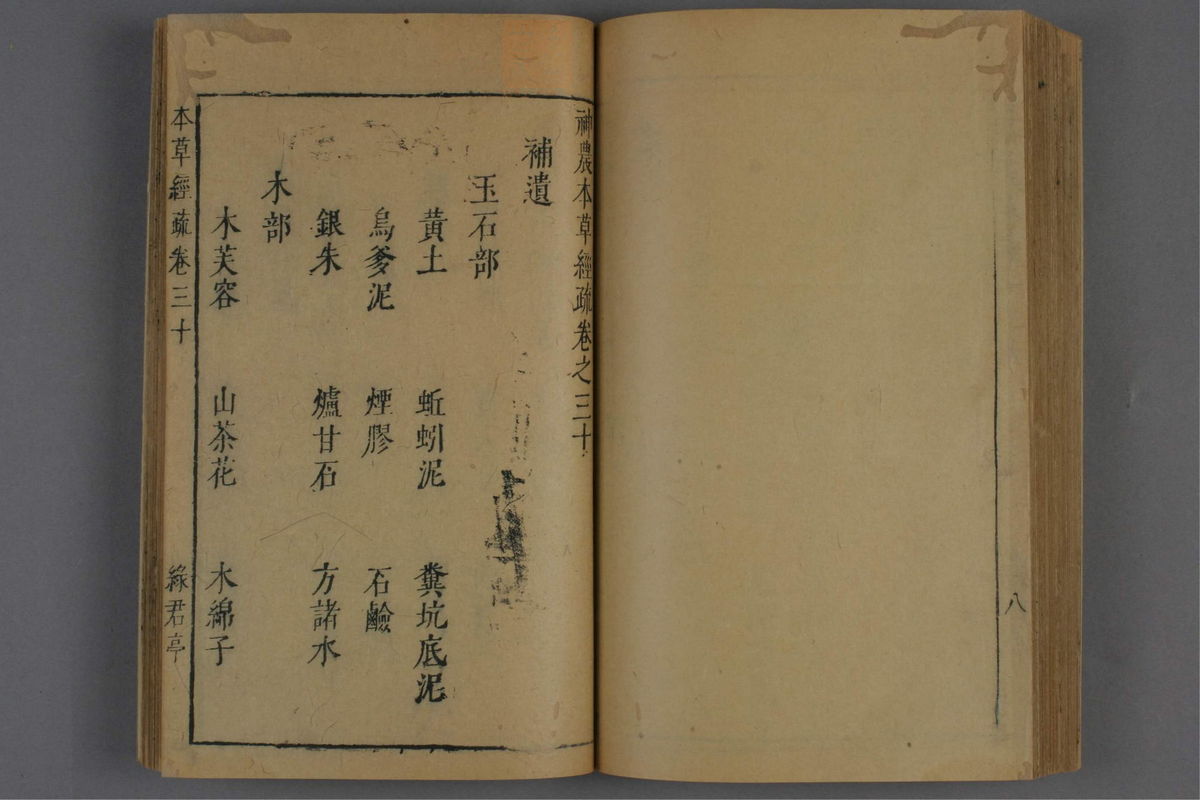 八
神農本草經疏卷之三十
補遺
玉石部
黃土 蚯蚓泥 糞坑底泥
烏爹泥 煙膠 石鹼
銀朱 爐甘石 方諸水
木部
木芙容 山茶花 木綿子
本草經疏卷三十 綠君亭